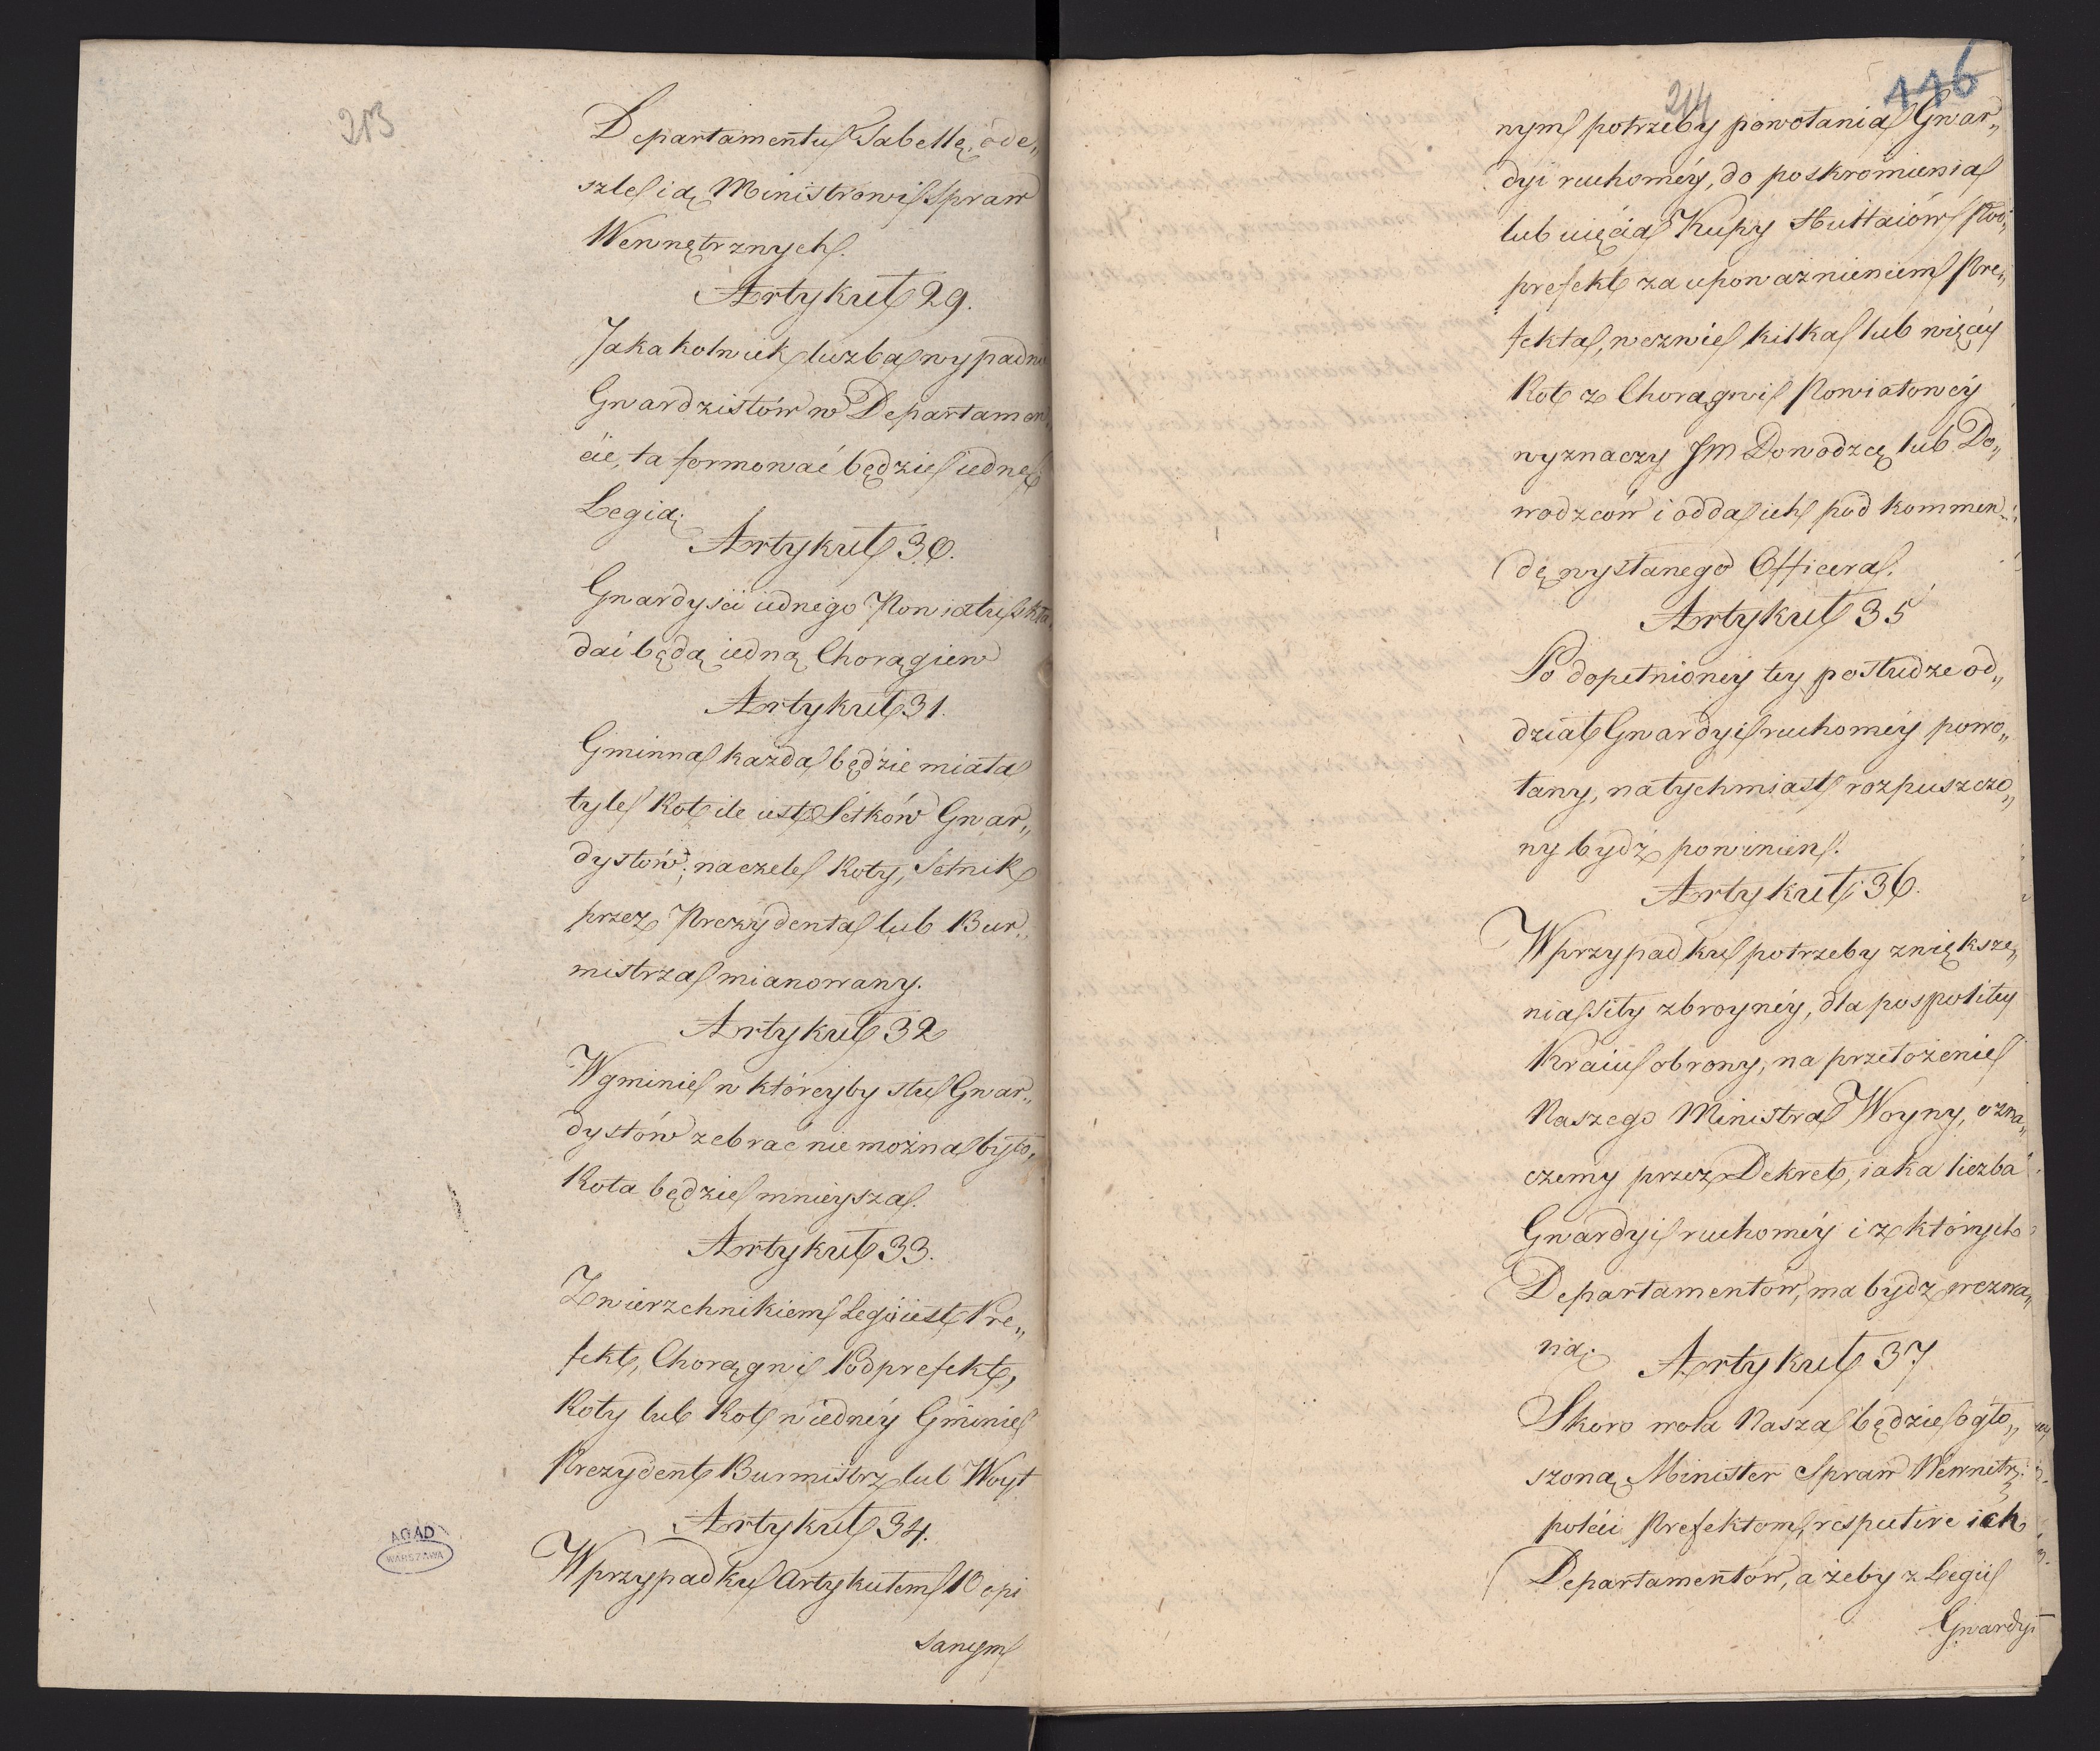 213
Departamentu Tabellę, ode„
szle ią Ministrowi Spraw
Wewnętrznych.
Artykuł 29.
Jakakolwiek liczba wypadnie
Gwardzistów w Departamen„
cie, ta formować będzie iedną
Legią.
Artykuł 30.
Gwardyści iednego Powiatu skła„
dać będą iedną Chorągiew
Artykuł 31.
Gminna każda będzie miała
tyle Rot ile iest Setków Gwar„
dystów; na czele Roty, Setnik
przez Prezydenta lub Bur„
mistrza mianowany.
Artykuł 32
W gminie w któreyby stu Gwar„
dystów zebrać nie można było,
Rota będzie mnieysza.
Artykuł 33.
Zwierzchnikiem Legii iest Pre„
fekt, Chorągwi Podprefekt,
Roty lub Rot w iednéy Gminie
Prezydent Burmistrz lub Woyt
Artykuł 34.
W przypadku Artykułem 10 opi
sanym
AGAD
WARSZAWA
214
116
nym potrzeby powołania Gwar„
dyi ruchoméy, do poskromienia
lub uięcia Kupy Hultaiów, Pod„
prefekt za upoważnieniem Pre„
fekta, wezwie kilka lub więcéy
Rot z Chorągwi Powiatowéy
wyznaczy JM Dowodzcę lub Do„
wodzców i odda ich pod kommen„
dę wysłanego Officera.
Artykuł 35
Po dopełnionéy téy posłudze od„
dział Gwardyi ruchoméy powo„
łany, natychmiast rozpuszczo„
ny bydź powinien.
Artykuł 36.
W przypadku potrzeby zwiększe„
nia siły zbroynéy, dla pospolitey
Kraiu obrony, na przełożenie
Naszego Ministra Woyny, ozna„
czemy przez Dekret, iaka liczba
Gwardyi ruchoméy i z których
Departamentów, ma bydz wezwa„
ną.
Artykuł 37
Skoro wola Nasza będzie ogło„
szoną Minister Spraw Wewnętrz:
poleci Prefektom, respective ich
Departamentów, a żeby z Legii
Gwardyi